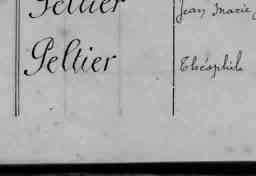 Peltier Jean Marie
Peltier Théophile